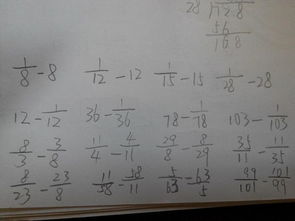 28 128
56
168
1/8 - 8  1/12 - 12  1/15 - 15  1/28 - 28
12 - 1/12  36 - 1/36  78 - 1/78  103 - 1/103
8/3 - 3/8  11/4 - 4/11  29/8 - 8/29  35/11 - 11/35
8/23 - 23/8  11/58 - 58/11  5/63 - 63/5  99/101 - 101/99